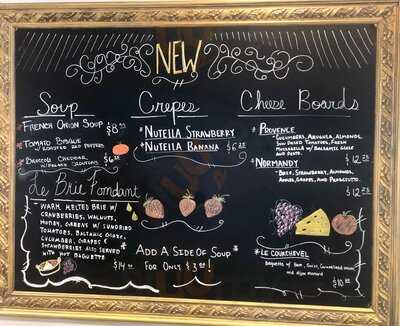 NEW
Soup
French Onion Soup $8
Tomato Bisque
w/ Roasted Red Peppers
Broccoli Cheddar $6
w/
Le Brie Fondant
Warm melted Brie w/
cranberries, walnuts,
honey, served w/ sundried
tomatoes, balsamic glaze,
cucumber, grapes &
strawberries. Also served
with hot baguette
$14
Crepes
Nutella Strawberry
Nutella Banana $6.25
Add a side of Soup
For only $3!
Cheese Boards
Provence
-Cucumbers, Arugula, Almonds,
Sun Dried Tomatoes, Fresh
Mozzarella w/ Balsamic Glaze
and Pesto.
$12.25
Normandy
-Brie, Strawberry, Almonds,
Apples, Grapes, and Prosciutto.
$12.25
Le Courchevel
Baguette of Ham, Swiss,
and Dijon mustard
$10